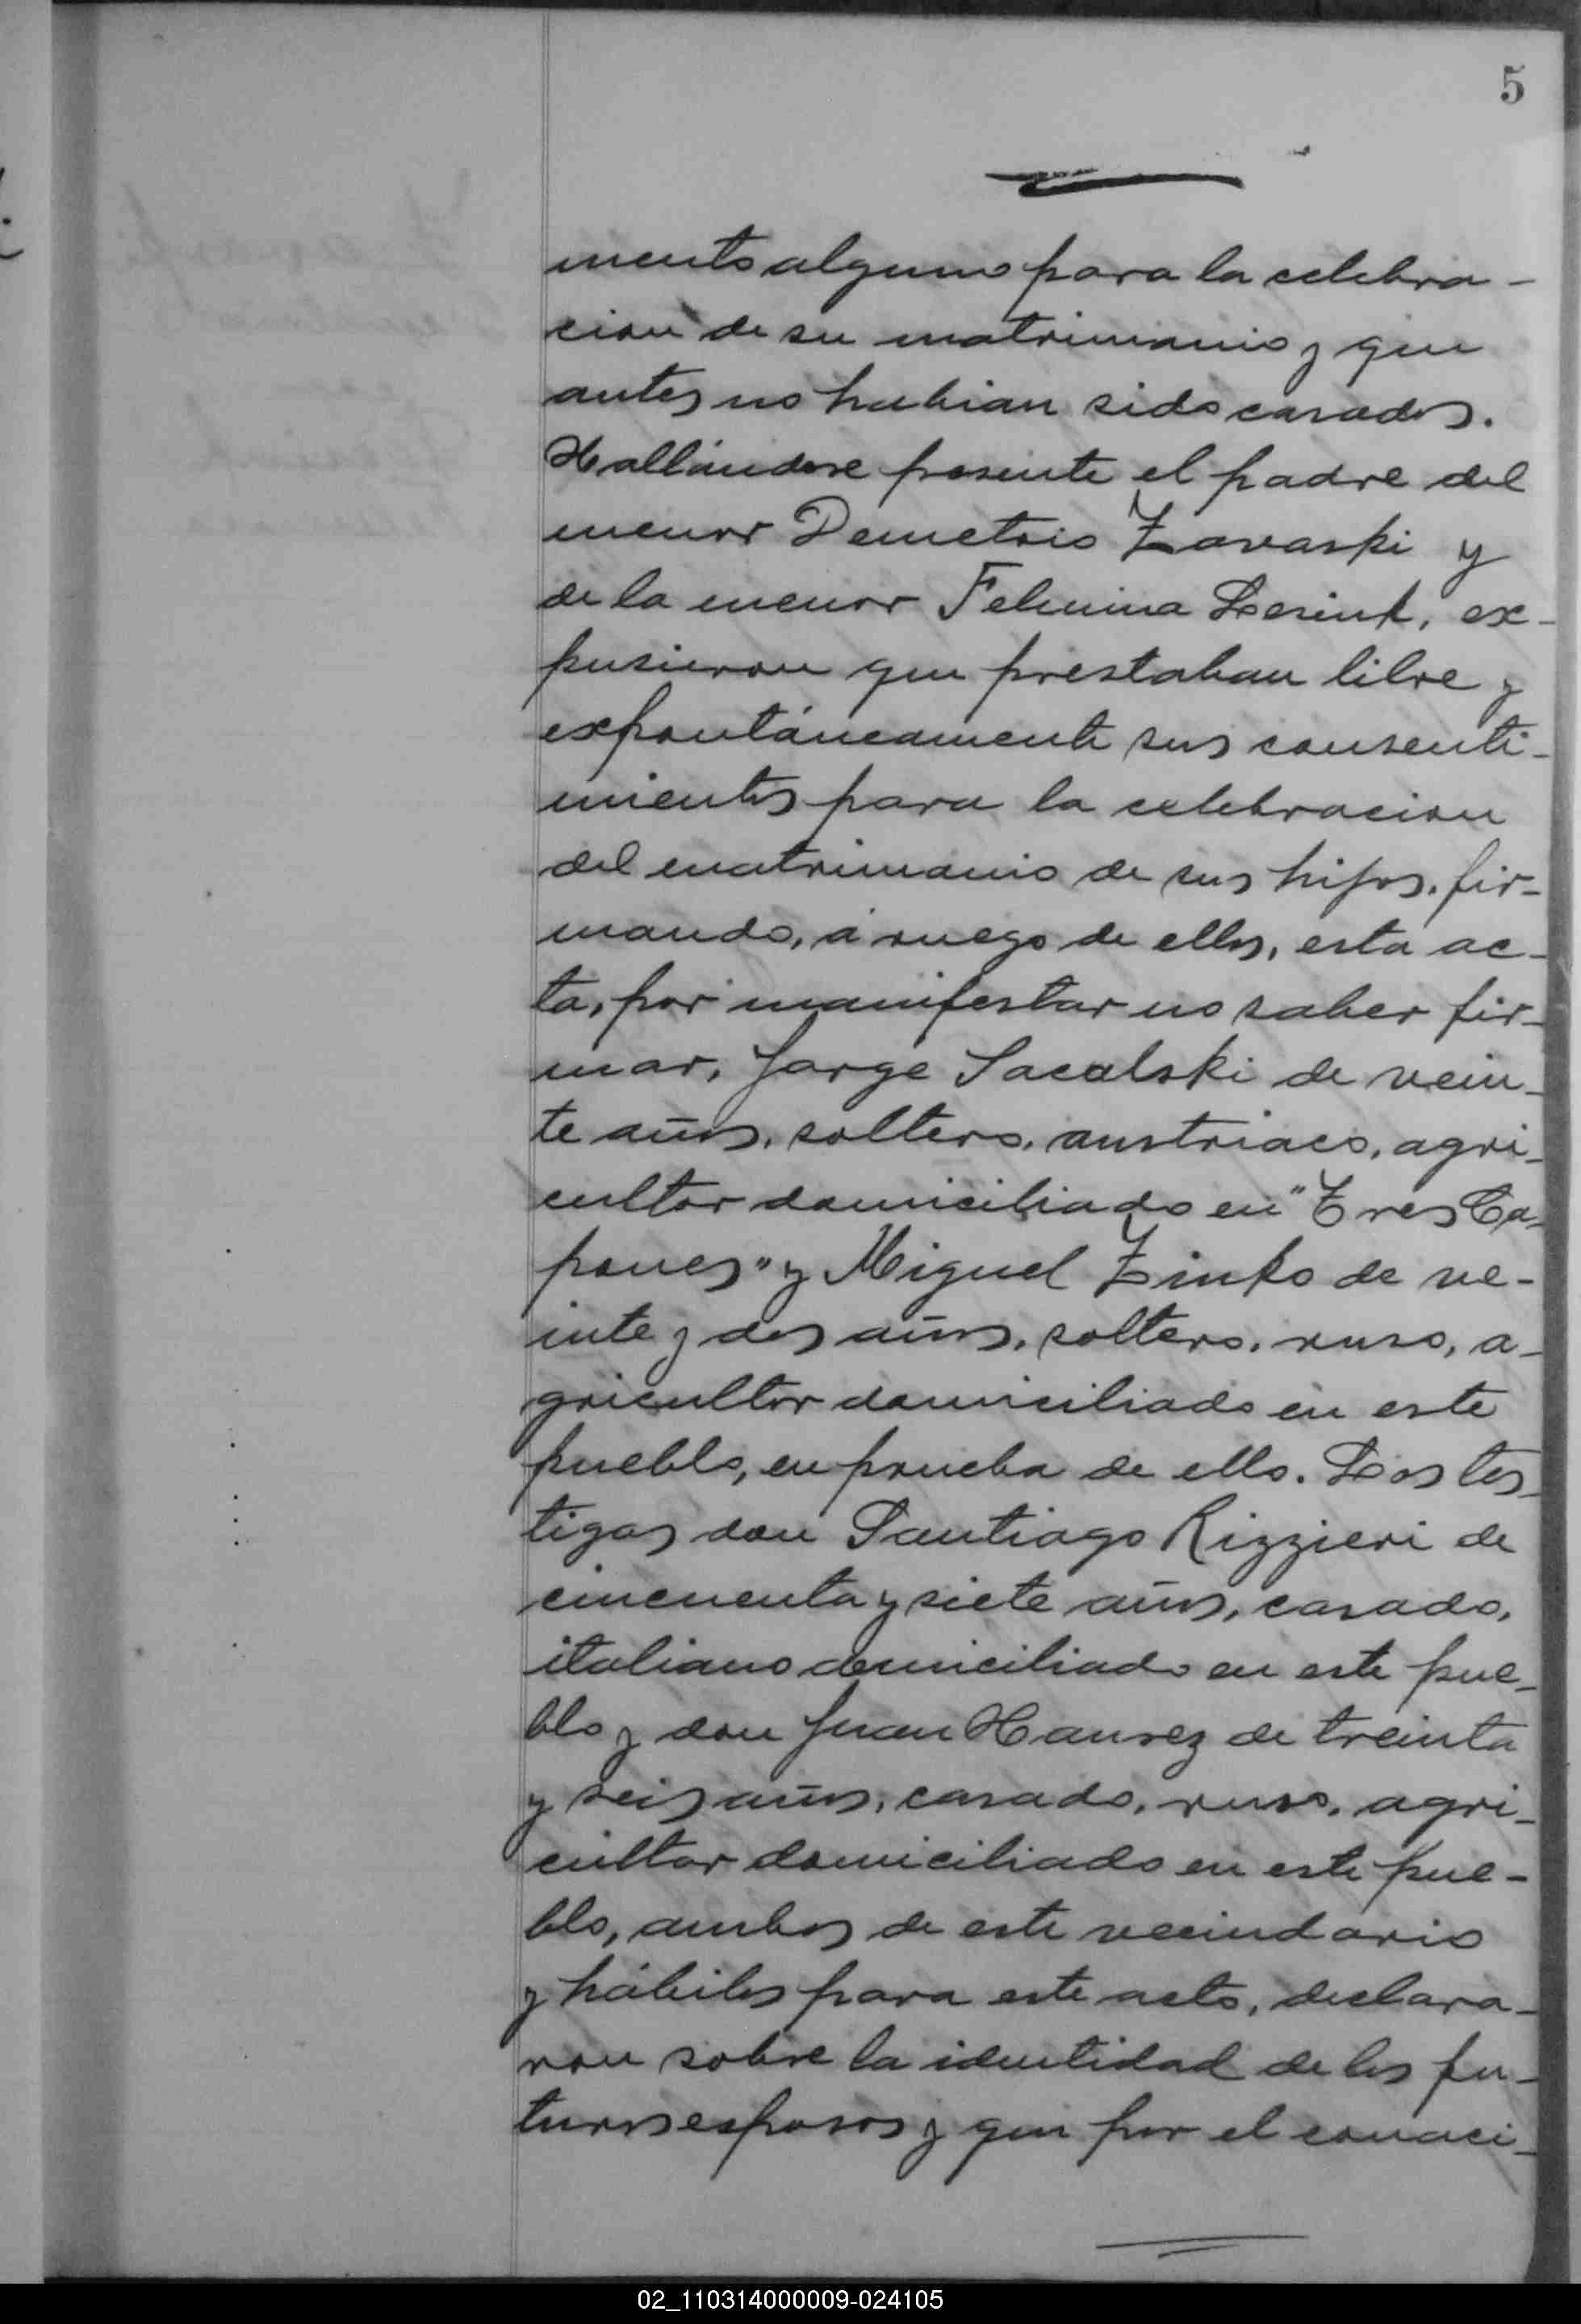 5
mento alguno para la celebra-
cion de su matrimonio y que
antes no habian sido casados.
Hallándose presente el padre del
menor Demetrio Zavaski y
de la menor Felimina Lesink, ex-
pusieron que prestaban libre y
expontáneamente sus consenti-
mientos para la celebracion
del matrimonio de sus hijos, fir-
mando, á ruego de ellos, esta ac-
ta, por manifestar no saber fir-
mar, Jorge Sacalski de vein-
te años, soltero, austriaco, agri-
cultor domiciliado en "Tres Ca-
pones" y Miguel Zinko de ve-
inte y dos años, soltero, ruso, a-
gricultor domiciliado en este
pueblo, en prueba de ello. Los tes-
tigos don Santiago Rizzieri de
cincuenta y siete años, casado,
italiano domiciliado en este pue-
blo y don Juan Hanrez de treinta
y seis años, casado, ruso, agri-
cultor domiciliado en este pue-
blo, ambos de este vecindario
y hábiles para este acto, declara-
ron sobre la identidad de los fu-
turos esposos y que por el conoci-
02_110314000009-024105